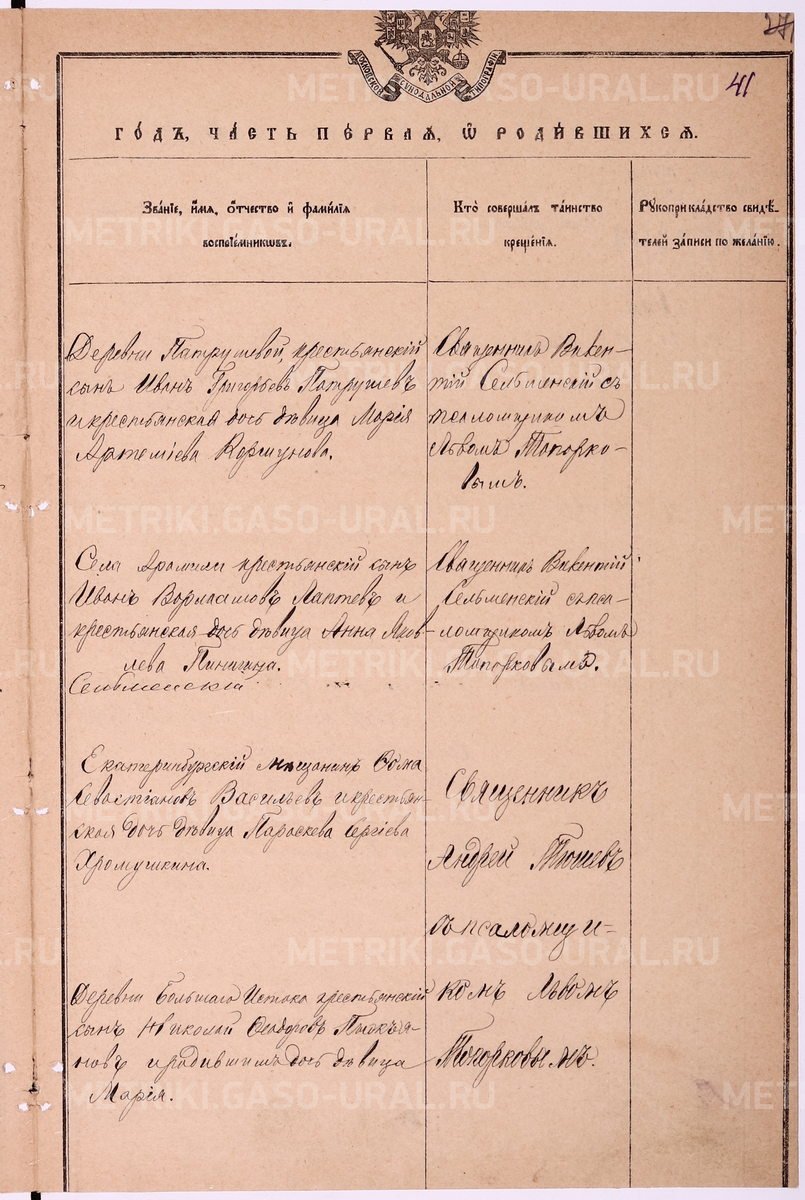 27
41
МОСКОВСКОЙ СѴНОДАЛЬНОЙ ТИПОГРАФІИ
ГО́ДЪ, ЧА́СТЬ ПЕ́РВАЯ, Ѡ҆ РОДИ́ВШИХСЯ.
Зва́нїе, и҆́мя, ѻ҆́тчество и҆ фами́лїя
воспрїе́мникѡвъ.
Кто̀ соверша́лъ та́инство
креще́нїя.
Рꙋкоприкла́дство свидѣ́-
телей за́писи по жела́нїю.
Деревни Патрушевой, крестьянскій
сынъ Иванъ Григорьевъ Патрушевъ
и крестьянская дочь дѣвица Марія
Артеміева Коршунова.
Священникъ Викен-
тій Сельменскій съ
псаломщикомъ
Львомъ Топорко-
вымъ.
Села Арамили крестьянскій сынъ
Иванъ Ворлаамовъ Лаптевъ и
крестьянская дочь дѣвица Анна Яков-
лева Пинигина.
Сельменскій
Священникъ Викентій
Сельменскій съ пса-
ломщикомъ Львомъ
Топорковымъ.
Екатеринбургскій мѣщанинъ Ѳома
Севастіановъ Васильевъ и крестьян-
ская дочь дѣвица Параскева Сергіева
Хромушкина.
Священникъ
Андрей Тюшевъ
съ псаломщи-
комъ Львомъ
Топорковымъ.
Деревни Большаго Истока крестьянскій
сынъ Николай Ѳеодоровъ
и родившимъ дочь дѣвица
Марія.
METRIKI.GASO-URAL.RU